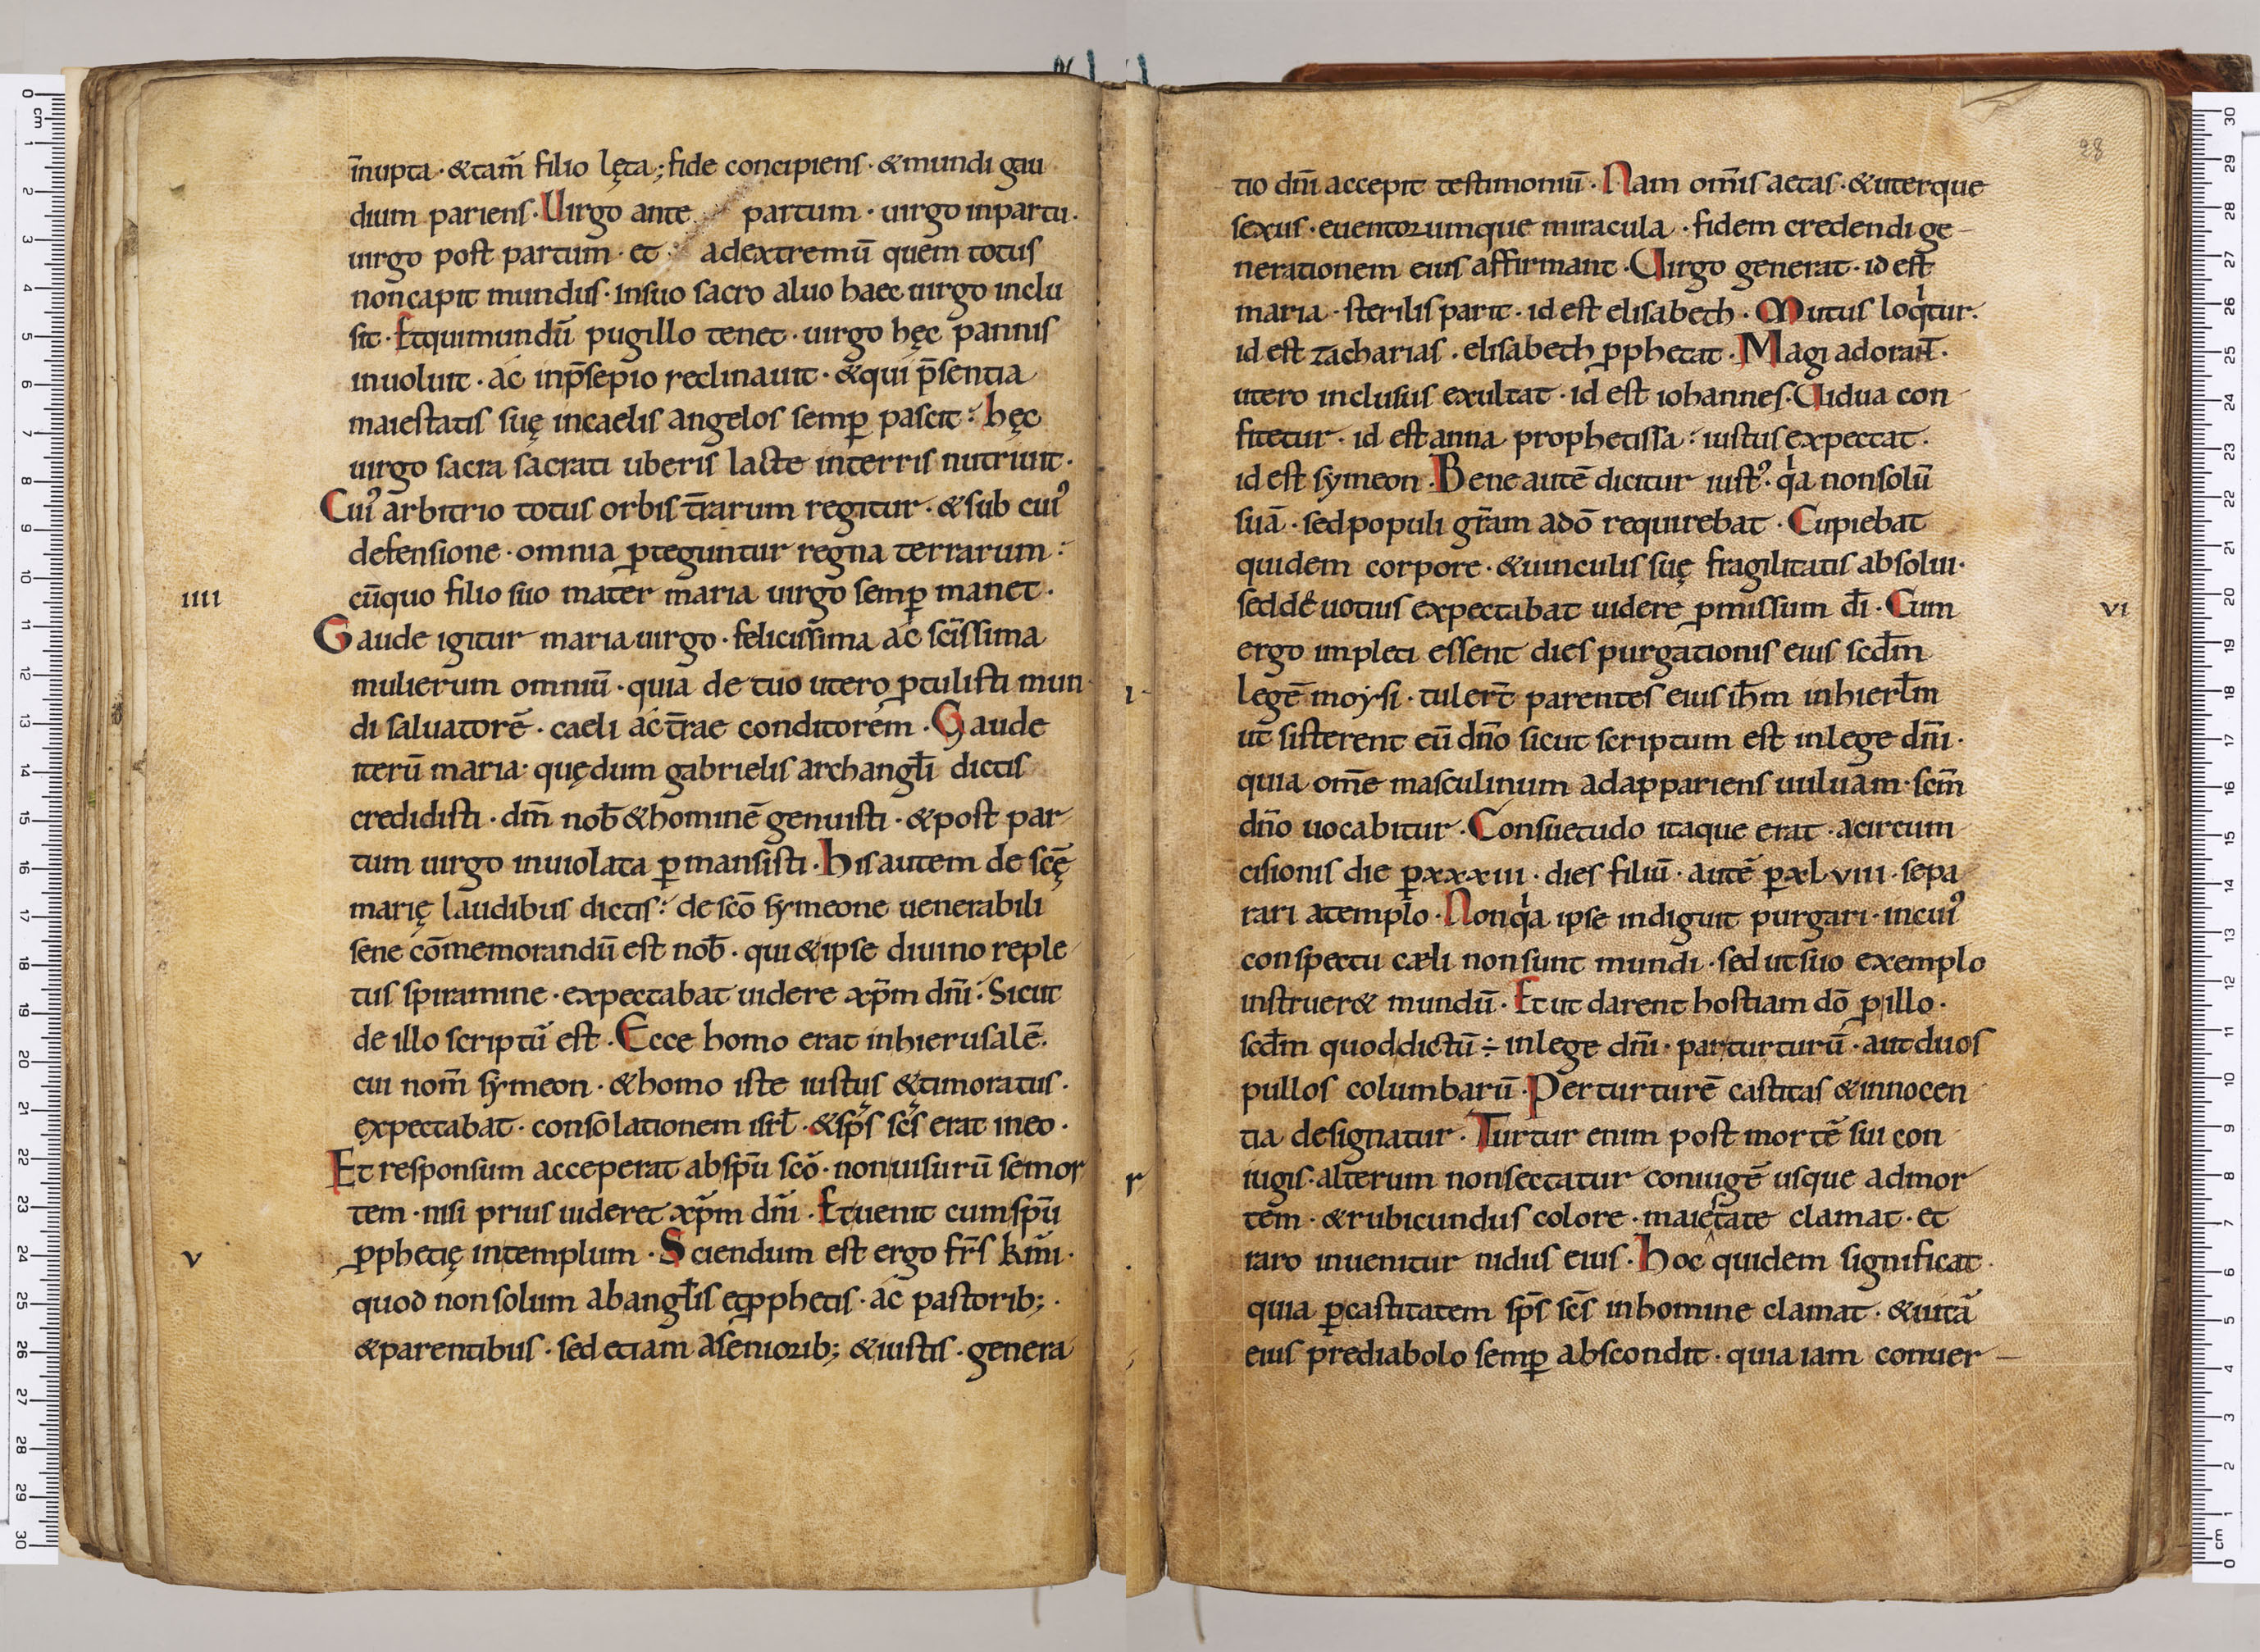 īnupta · &tam̄ filio lęta ; fide concipiens · & mundi gau
dium pariens · Uirgo ante partum · uirgo inpartu ·
uirgo post partum · et adextremū quem totus
noncapit mundus · insuo sacro aluo haec uirgo inclu
sit · Etquimundū pugillo tenet · uirgo hęc pannis
inuoluit · ac inp̄sepio reclinauit · &qui p̄sentia
maiestatis suę incaelis angelos semꝑ pascit : hęc
uirgo sacra sacrati uberis lacte interris nutriuit ·
Cuiꝰ arbitrio totus orbis t̄rarum regitur · & sub euiꝰ
defensione · omnia ꝓteguntur regna terrarum :
IIII
cūquo filio suo mater maria uirgo semꝑ manet ·
Gaude igitur maria uirgo · felicissima ac sc̄issima
mulierum omniū · quia de tuo utero ꝓtulisti mun
di saluatorē · caeli ac t̄rae conditorem · Gaude
iterū maria · quędum gabrielis archangl̄i dictis
credidisti · dm̄ nob̄ & hominē genuisti · & post par
tum uirgo inuiolata ꝑmansisti · his autem de scę̄
marię laudibus dictis : de scō symeone uenerabili
sene cōmemorandū est nob̄ · qui & ipse diuino reple
tus spiramine · expectabat uidere xp̄m dn̄i · Sicut
de illo scriptū est · Ecce homo erat inhierusalē ·
cui nom̄ symeon · & homo iste iustus & timoratus ·
expectabat · consolationem isrl̄ · & sp̄s sc̄s erat ineo ·
Et responsum acceperat abspū scō · nonuisurū semor
tem · nisi prius uideret xp̄m dn̄i · Etuenit cumspū
V
ꝓphetię intemplum · Sciendum est ergo fr̄s km̄i ·
quod nonsolum abangl̄is etꝓphetis · ac pastorib; ·
&parentibus · sed etiam aseniorib; & iustis · genera
28
tio dn̄i accepit testimoniū · Nam om̄is aetas · & uterque
sexus · euentorumque miracula · fidem credendi ge-
nerationem eius affirmant · Uirgo generat · id est
maria · sterilis parit · id est elisabeth · Mutus loqͥtur ·
id est zacharias · elisabeth ꝓphetat · Magi adorant ·
utero inclusus exultat · id est iohannes · Uidua con
fitetur · id est anna prophetissa : iustus expectat ·
id est symeon · Bene autē dicitur iustꝰ · qͥa nonsolū
suā · sed populi gr̄am adō requirebat · Cupiebat
quidem corpore · & uinculis suę fragilitatis absolui ·
VI
sed deuotius expectabat uidere ꝓmissum dī · Cum
ergo impleti essent dies purgationis eius scdm̄
legē moysi · tulert̄ parentes eius ihm̄ inhierl̄m
ut sisterent eū dn̄o sicut scriptum est inlege dn̄i ·
quia om̄e masculinum adappariens uuluam · scm̄
dn̄o uocabitur · Consuetudo itaque erat · acircum
cisionis die ꝑxxxiii · dies filiū · autē ꝑxl·viii · sepa
rari atemplo · Nonqͥa ipse indiguit purgari · incuiꝰ
conspectu cæli nonsunt mundi · sed utsuo exemplo
instruer& mundū · Et ut darent hostiam dō ꝓillo ·
scdm̄ quoddictū ÷ inlege dn̄i · parturturū · aut duos
pullos columbarū · Per turturē castitas & innocen
tia designatur · Turtur enim post mortē sui con
iugis · alterum nonsectatur coniugē usque admor
tem · & rubicundus colore · maiestate clamat · et
raro inuenitur nidus eius · Hoc quidem significat
quia ꝑcastitatem sp̄s sc̄s inhomine clamat · & uitā
eius prediabolo semꝑ abscondit · quia iam conuer-